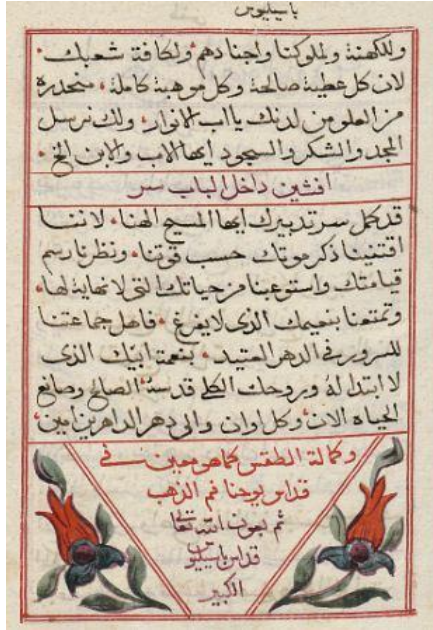 باسيليوس
وللكهنة ولملوكنا واجنادهم ولكافة شعبك
لان كل عطية صالحة وكل موهبة كاملة، منحدره
من العلو من لدنك يااب الانوار، ولك نرسل
المجد والشكر والسجود ايها الاب والابن الخ
افشين داخل الباب سر
قد كمل سر تدبيرك ايها المسيح الهنا، لاننا
اقتنينا ذكر موتك حسب قوتنا، ونظرنا رسم
قيامتك واستوعبنا من حياتك التى لا نهاية لها،
وتمتعنا بنعيمك الذى لا يفرغ، فاهل جماعتنا
للسرور فى الدهر العتيد، بنعمة ابيك الذى
لا ابتدا له وبروحك الكلى قدسه الصالح وصانع
الحياه الان، وكل اوان والى دهر الداهرين امين
وكمالة الطقس كما هو مبين فى
قداس يوحنا فم الذهب
ثم بعون الله تعالى
قداس باسيليوس
الكبير